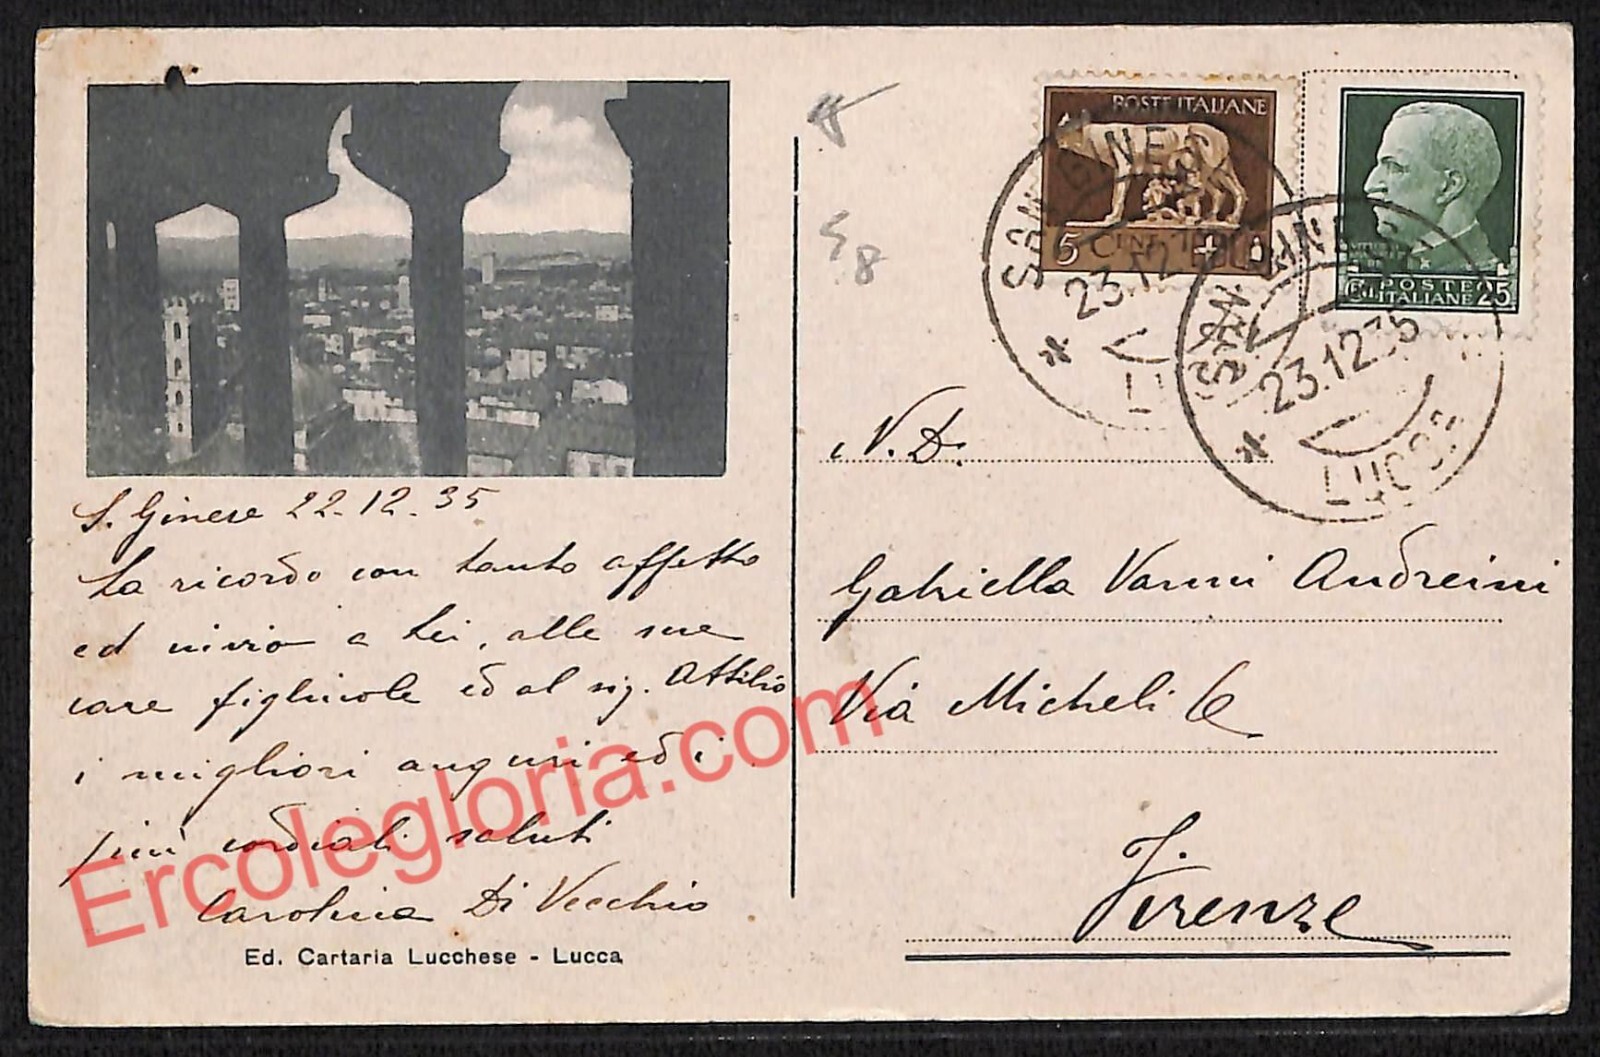 S. Ginese 22-12-35
La ricordo con tanto affetto
ed invio a Lei, alle sue
care figliuole ed al sig. Attilio
i migliori auguri ed i
più cordiali saluti
Carolina Di Vecchio
Ed. Cartaria Lucchese - Lucca
POSTE ITALIANE
5 CENT
POSTE
ITALIANE 25
SAN GINESE
23.12.35
LUCCA
SAN GINESE
23.12.35
LUCCA
N. D.
Gabriella Vanni Andreini
Via Micheli 6
Firenze
Ercolegloria.com